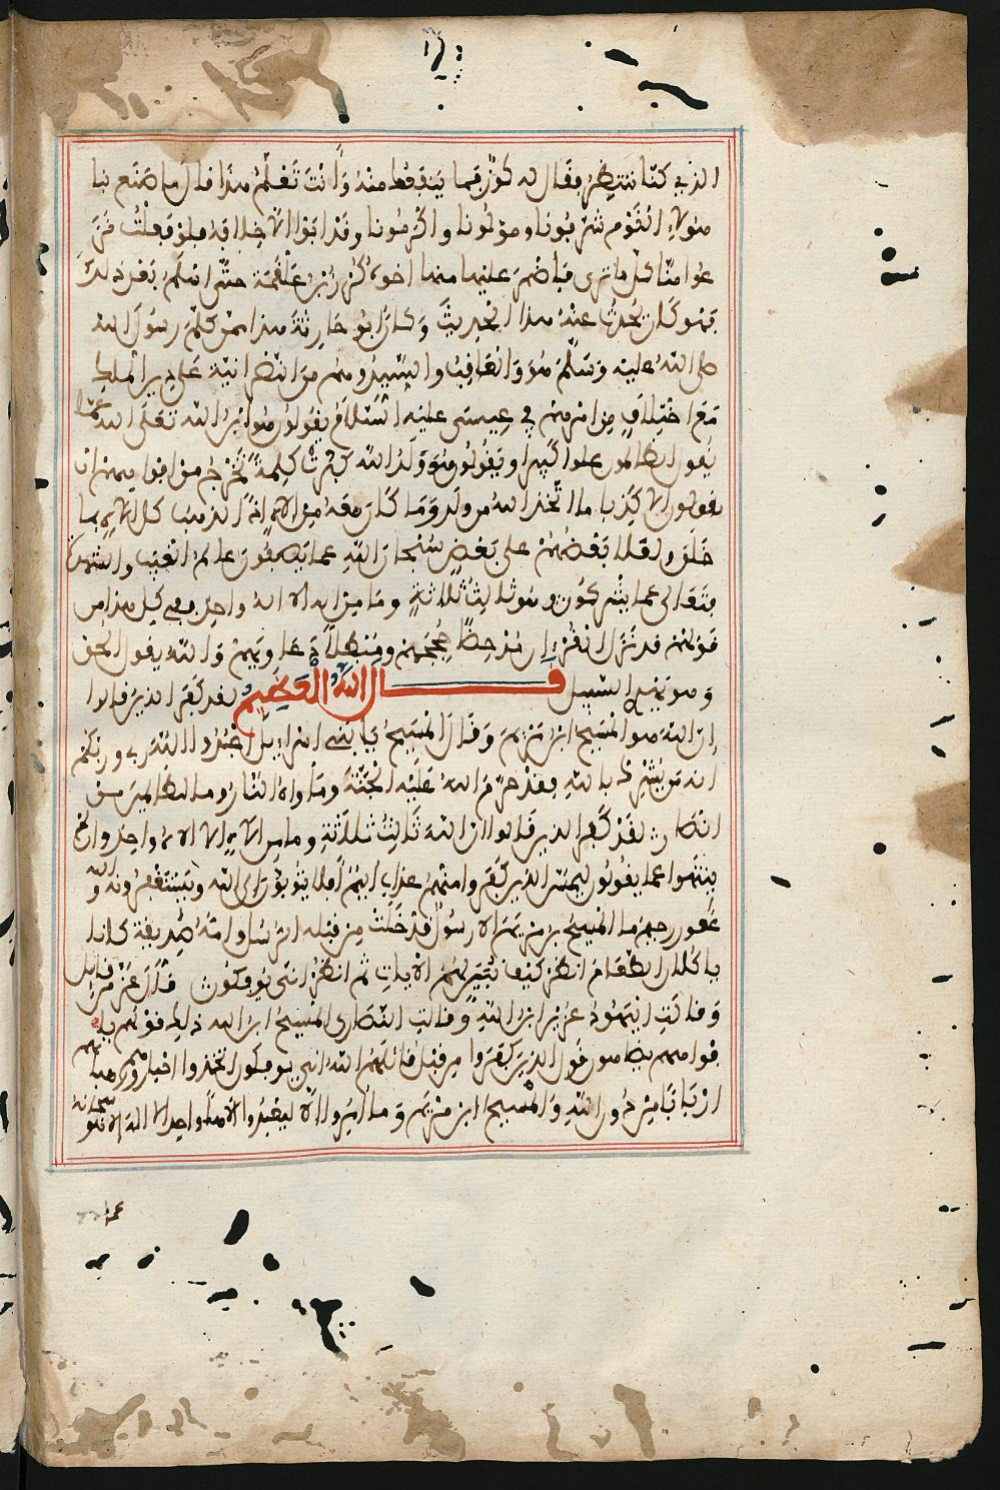 الذي كنا ننتظر فقال له كوز فما يمنعك منه وأنت تعلم هذا قال ما صنع بنا
هؤلاء القوم شرفونا ومولونا واكرمونا وقد ابوا الا خلافه فلو فعلت نز
عوا منا كل ما ترى فاضمر عليها منه اخوه كرز بن علقمة حتى اسلم بعد ذلك
فهو كان يحدث عنه هذا الحديث وكان ابو حارثة هذا ممن كلم رسول الله
صلى الله عليه وسلم هو والعاقب والسيد وهم من النصرانية على دين الملك
مع اختلاف من امرهم في عيسى عليه السلام يقولون هو ابن الله تعلى الله عما
يقول الظالمون علوا كبيرا ويقولون هو ولد الله كبرت كلمة تخرج من افواههم ان
يقولون الا كذبا ما اتخذ الله من ولد وما كان معه من الاه اذا لذهب كل الاه بما
خلق ولعلا بعضهم على بعض سبحان الله عما يصفون عالم الغيب والشهادة
فتعالى عما يشركون وهو ثالث ثلاثة وما من اله الا اله واحد وفي كل هذا من
قولهم قد نزل القرءان مدحضا حججهم ومبطلا دعاويهم والله يقول الحق
وهو يهدي السبيل قال الله العظيم لقد كفر الذين قالوا
ان الله هو المسيح ابن مريم وقال المسيح يا بني اسرائيل اعبدوا الله ربي وربكم
انه من يشرك بالله فقد حرم الله عليه الجنة وماواه النار وما للظالمين من
انصار لقد كفر الذين قالوا ان الله ثالث ثلاثة وما من الاه الا الاه واحد وان لم
ينتهوا عما يقولون ليمسن الذين كفروا منهم عذاب اليم افلا يتوبون الى الله ويستغفرونه والله
غفور رحيم ما المسيح بن مريم الا رسول قد خلت من قبله الرسل وامه صديقة كانا
ياكلان الطعام انظر كيف نبين لهم الايات ثم انظر انى يوفكون قال عز من قايل
وقالت اليهود عزير ابن الله وقالت النصارى المسيح ابن الله ذلك قولهم بأ
فواههم يضاهون قول الذين كفروا من قبل قاتلهم الله انى يوفكون اتخذوا احبارهم ورهبانهم
اربابا من دون الله والمسيح ابن مريم وما امروا الا ليعبدوا الاها واحدا لا اله الا هو سبحانه
عما